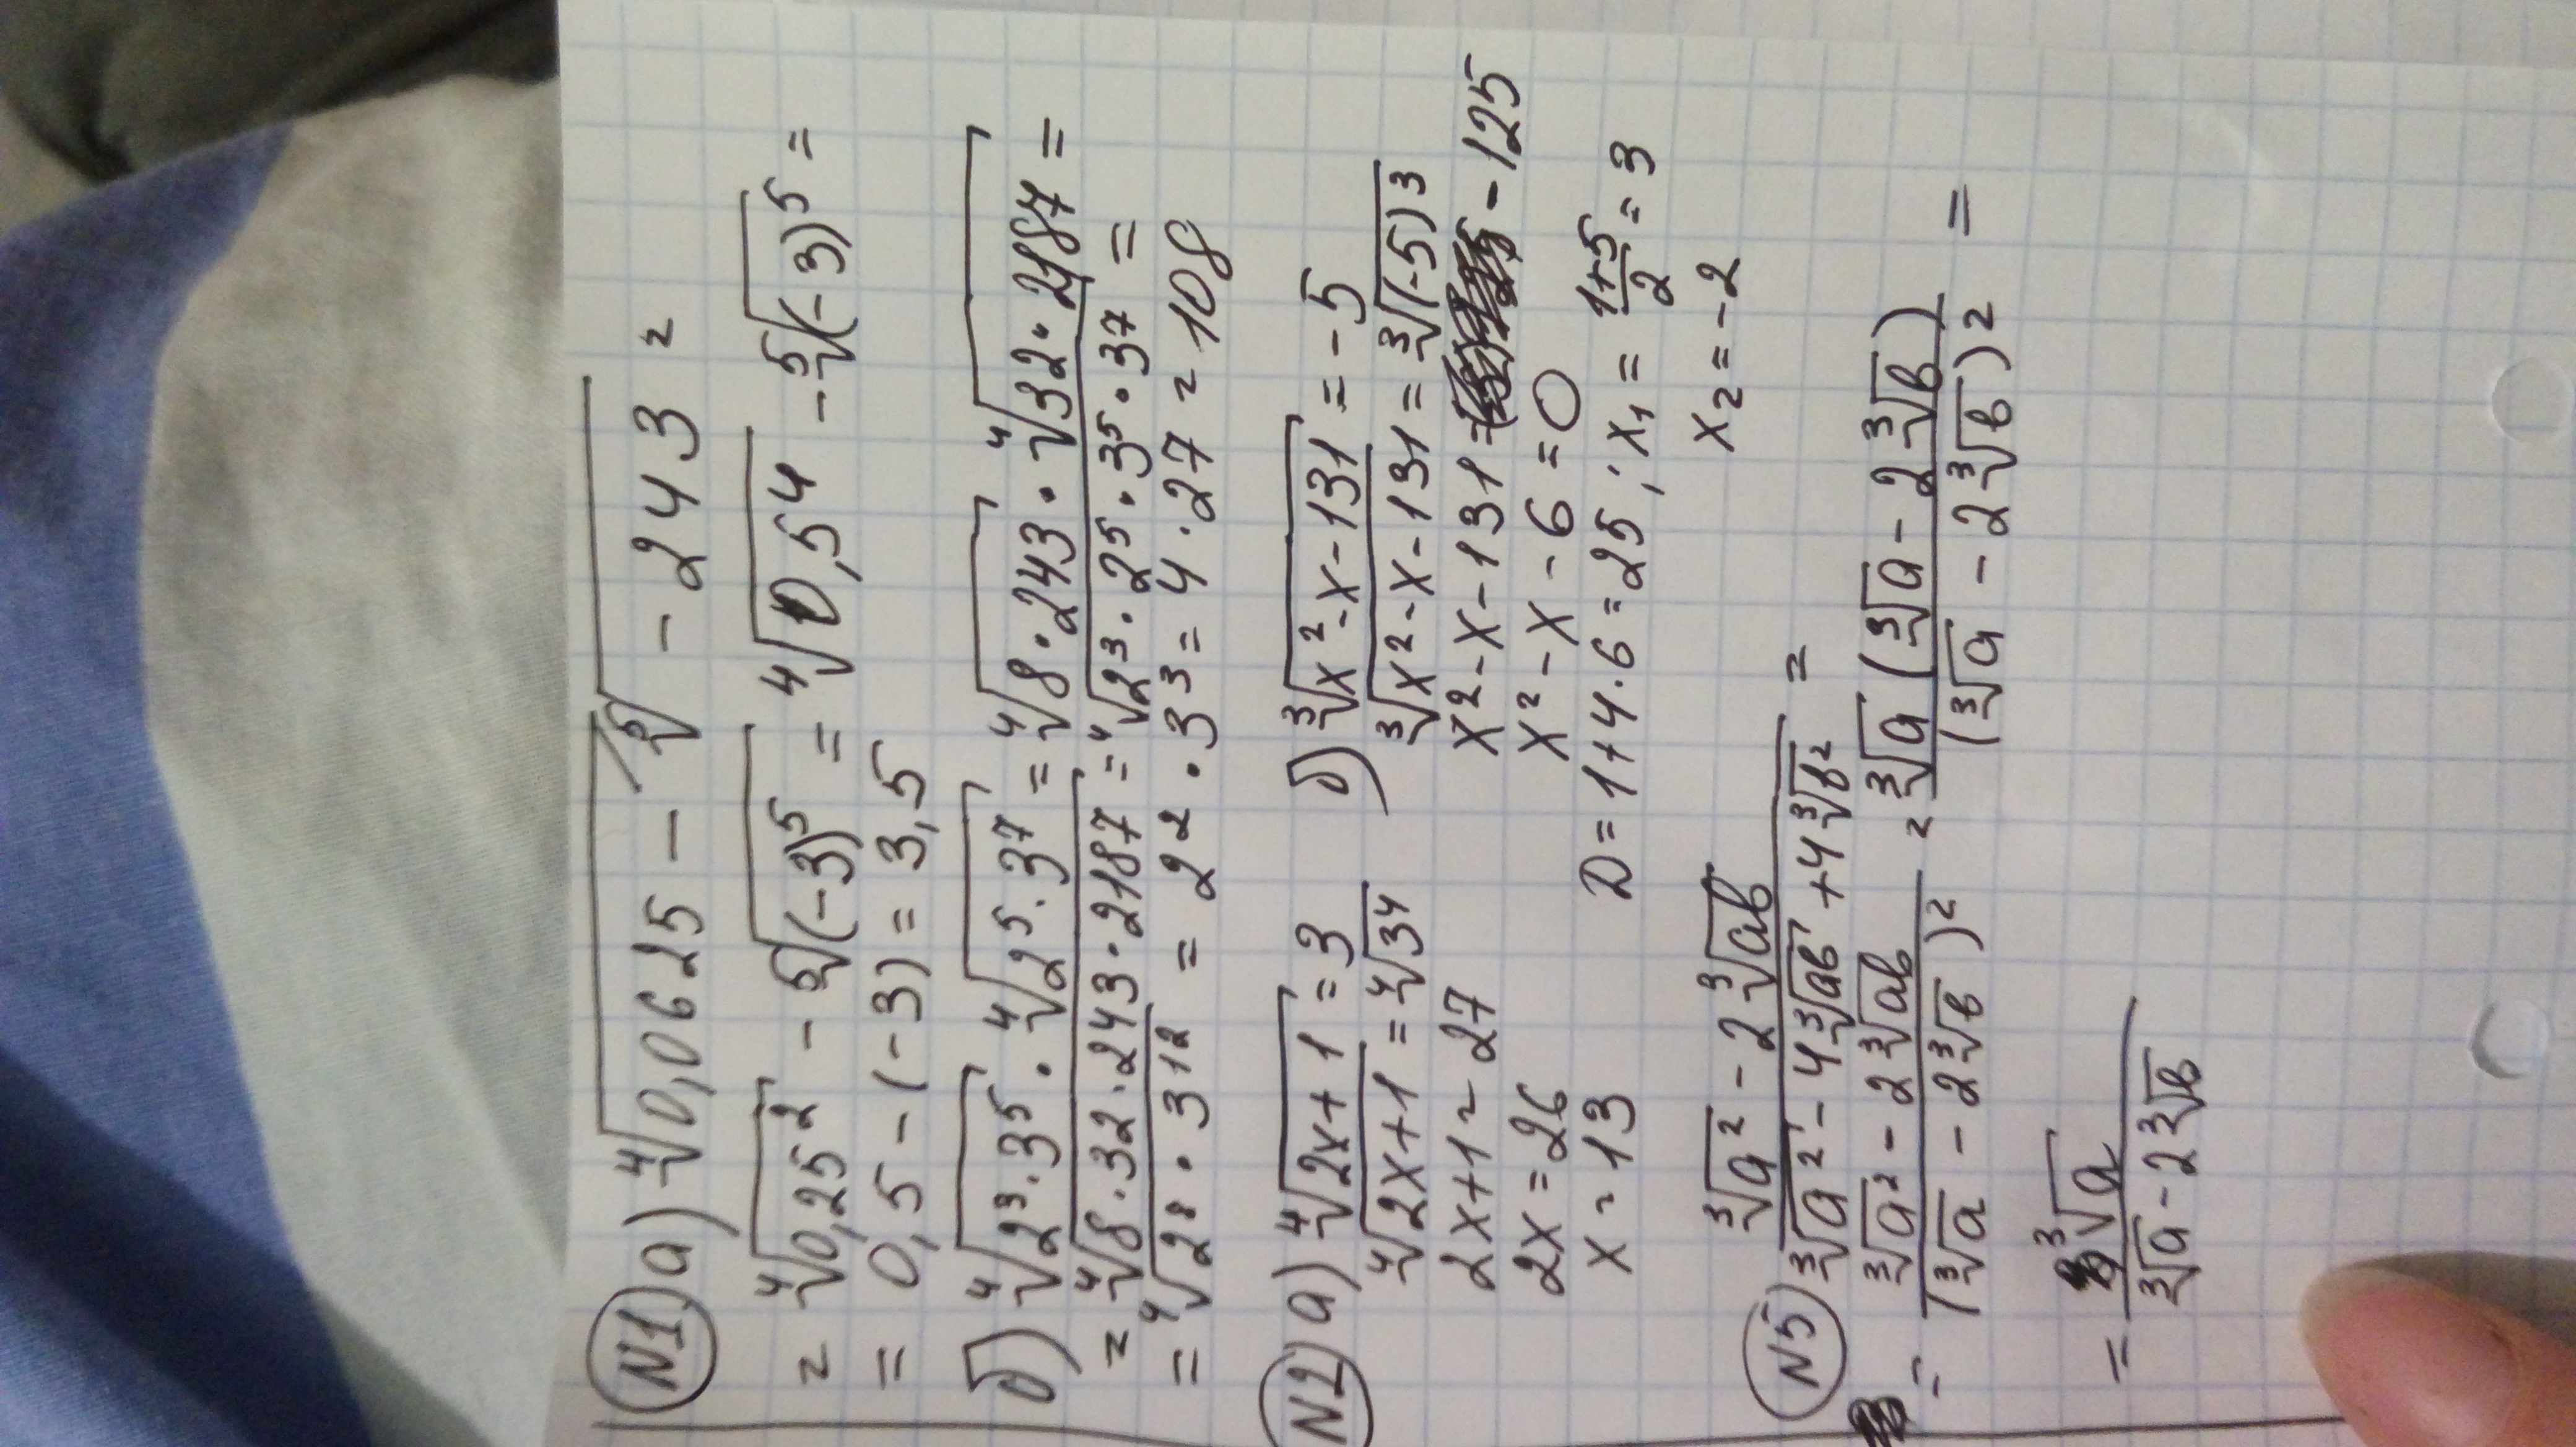 N1) а) ⁴√0,0625 - ⁵√-243 =
= ⁴√0,25² - ⁵√(-3)⁵ = ⁴√0,5⁴ - ⁵√(-3)⁵ =
= 0,5 - (-3) = 3,5
б) ⁴√2³·3⁵ · ⁴√2⁵·3⁷ = ⁴√8·243 · ⁴√32·2187 =
= ⁴√8·32·243·2187 = ⁴√2³·2⁵·3⁵·3⁷ =
= ⁴√2⁸·3¹² = 2²·3³ = 4·27 = 108
N2) а) ⁴√2x+1 = 3
⁴√2x+1 = ⁴√3⁴
2x+1 = 27
2x = 26
x = 13
б) ³√x²-x-131 = -5
³√x²-x-131 = ³√(-5)³
x²-x-131 = -125
x²-x-6=0
D=1+4·6=25; x₁ = (1+5)/2 = 3
x₂ = -2
N5) (³√a² - 2³√ab)/(³√a² - 4³√ab + 4³√b²) =
= (³√a² - 2³√ab)/(³√a - 2³√b)² = ³√a(³√a - 2³√b)/(³√a - 2³√b)² =
= ³√a/(³√a - 2³√b)